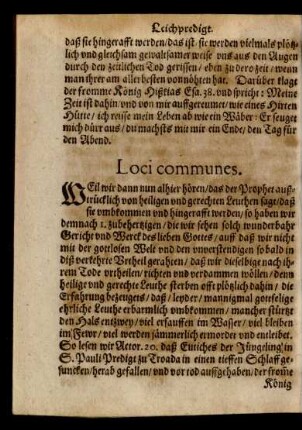 Leichpredigt.
daß sie hingerafft werden/das ist/sie werden vielmals plötz-
lich vnd gleichsam gewaltsamer weise vns aus den Augen
durch den zeitlichen Tod gerissen/eben zu der o zeit/wenn
man ihrer am allerbesten vonnöhten hat. Darüber klagt
der fromme König Hißkias Esa. 38. vnd spricht: Meine
Zeit ist dahin/vnd von mir auffgereumet/wie eines Hirten
Hütte/ich reisse mein Leben ab wie ein Wäber: Er seuget
mich dürr aus/du machsts mit mir ein Ende/den Tag für
den Abend.
Loci communes.
WEil wir dann nun alhier hören/das der Prophet auß-
trücklich von heiligen vnd gerechten Leuthen sagt/daß
sie vmbkommen vnd hingerafft werden/so haben wir
demnach 1. zubehertzigen/die wir sehen solch wunderbahr
Gericht vnd Werck des lieben Gottes/auff daß wir nicht
mit der gottlosen Welt vnd den vnverstendigen so bald in
diß verkehrte Vrtheil gerahten/daß wir dieselbige nach ih-
rem Tode vrtheilen/richten vnd verdammen wöllen/denn
heilige vnd gerechte Leuthe sterben offt plötzlich dahin/die
Erfahrung bezeugets/daß/leyder/mannigmal gottselige
ehrliche Leuthe erbarmlich vmbkommen/mancher stürtzt
den Hals entzwey/viel ersauffen im Wasser/viel bleiben
im Fewr/viel werden jämmerlich ermordet vnd entleibet.
So lesen wir Actor. 20. daß Eutiches der Jüngeling in
S. Pauli Predigt zu Troada in einen tieffen Schlaff ge-
suncken/herab gefallen/vnd vor tod auffgehaben/der from̃e
König